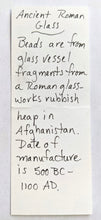 Ancient Roman
Glass
Beads are from
glass vessel
fragments from
a Roman glass-
works rubbish
heap in
Afghanistan.
Date of
manufacture
is 500 BC -
1100 AD.